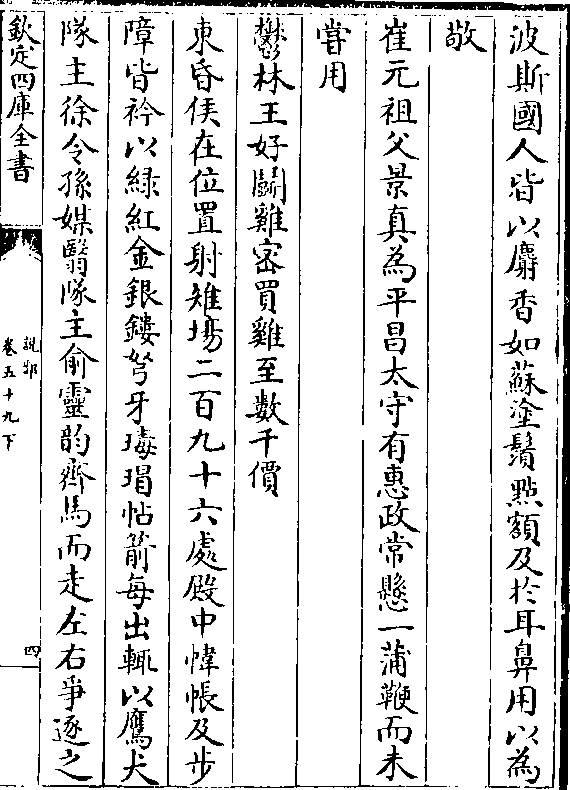 波斯國人皆以麝香如蘇塗鬚㸃額及於耳鼻用以為
敬
崔元祖父景真為平昌太守有惠政常懸一蒲鞭而未
甞用
鬱林王好鬭雞密買雞至數千價
東昏侯在位置射雉塲二百九十六處殿中幃帳及步
障皆袷以緑紅金銀鏤弩牙瑇瑁帖箭每出輒以鷹犬
隊主徐令孫媒翳隊主俞靈韵齊馬而走左右爭逐之
欽定四庫全書
說郛
卷五十九下
四